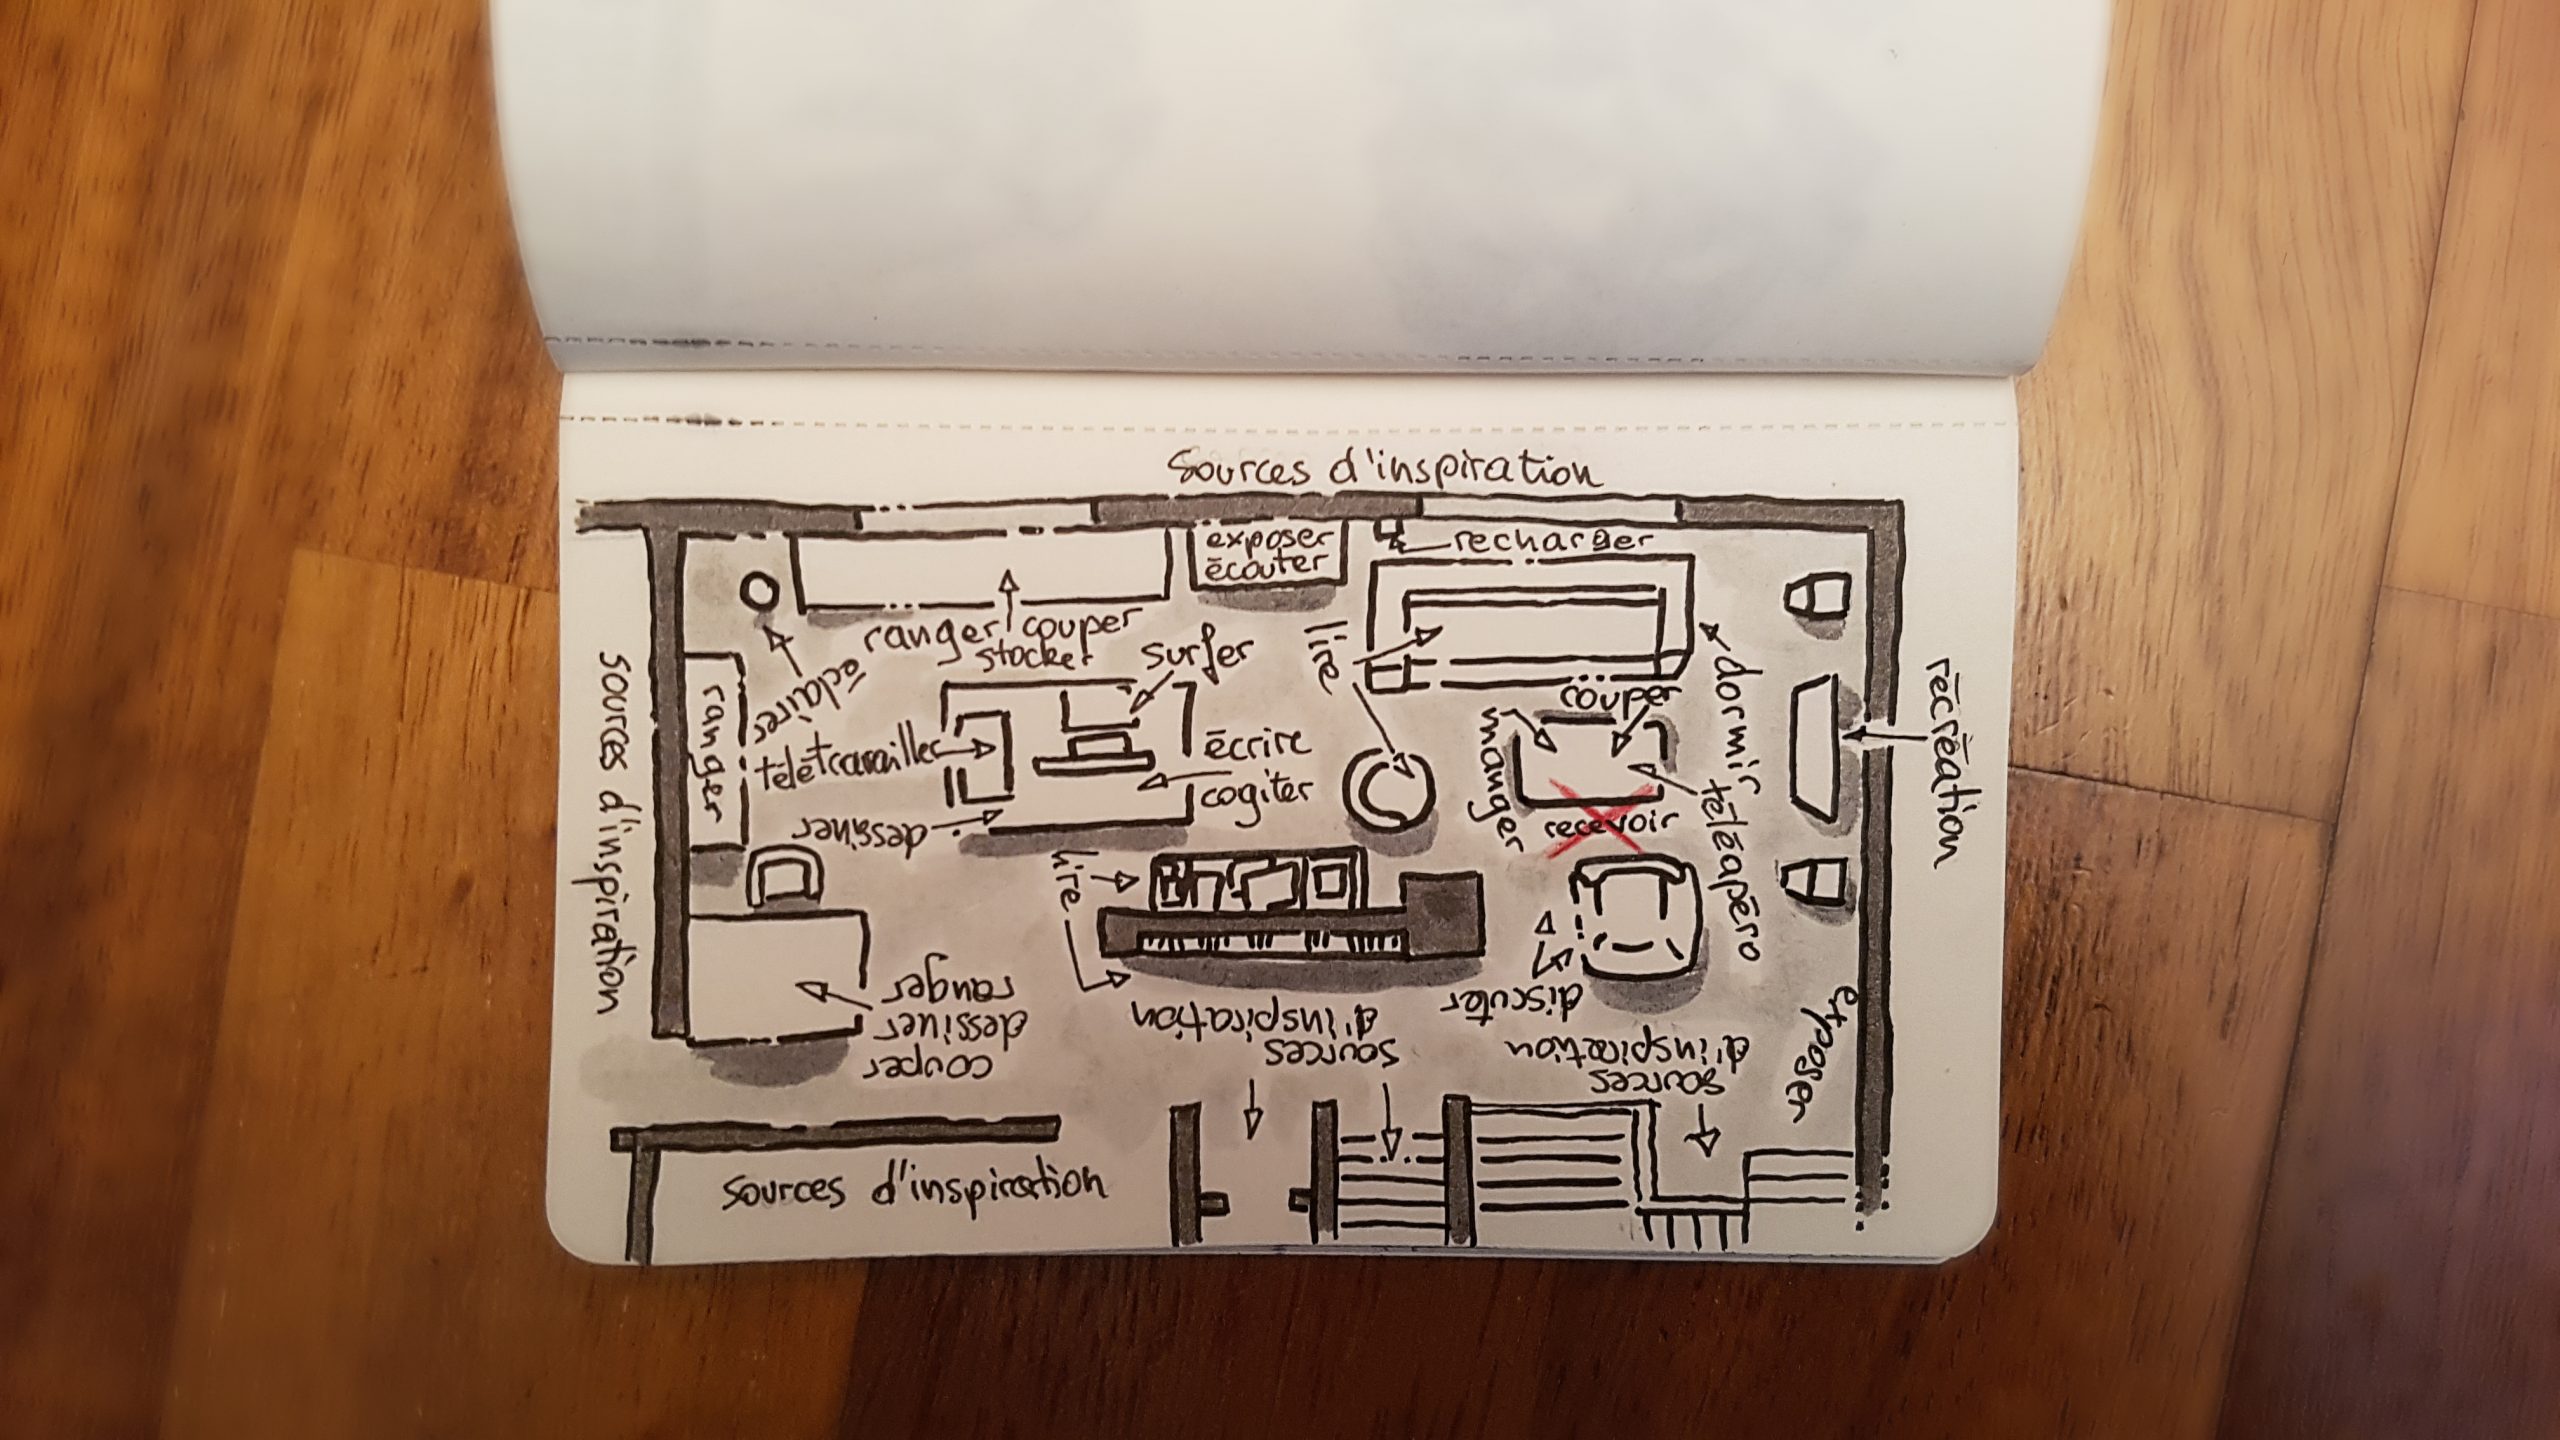 Sources d'inspiration
exposer
écouter
recharger
ranger couper
stocker
surfer
lire
éclairer
ranger
télétravailler
écrire
cogiter
dessiner
couper
manger
dormir
téléapéro
recevoir
récréation
sources d'inspiration
lire
ranger
dessiner
couper
discuter
sources
d'inspiration
sources
d'inspiration
exposer
sources d'inspiration